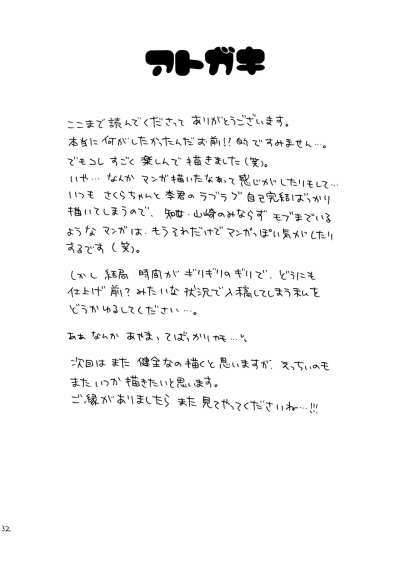 アトガキ
ここまで読んでくださって ありがとうございます。
本当に何がしたかったんだお前!! 的ですみません…。
でもコレ すごく 楽しんで 描きました(笑)。
いや… なんか マンガ描いたなあって 感じがしたりもして…
いつも さくらちゃんと 李君の ラブラブ 自己完結ばっかり
描いてしまうので、知世・山崎のみならず モブまでいる
ような マンガは、もうそれだけで マンガっぽい気がしたり
するです(笑)。
しかし 結局 時間が ギリギリのギリで、どうにも
仕上げ前?みたいな 状況で 入稿してしまう私を
どうかゆるしてください…。
ああ なんか あやまってばっかりかも…。
次回は また 健全なの描くと思いますが、えっちぃのも
またいつか 描きたいと思います。
ご縁がありましたら また 見てやってくださいね…!!!
32